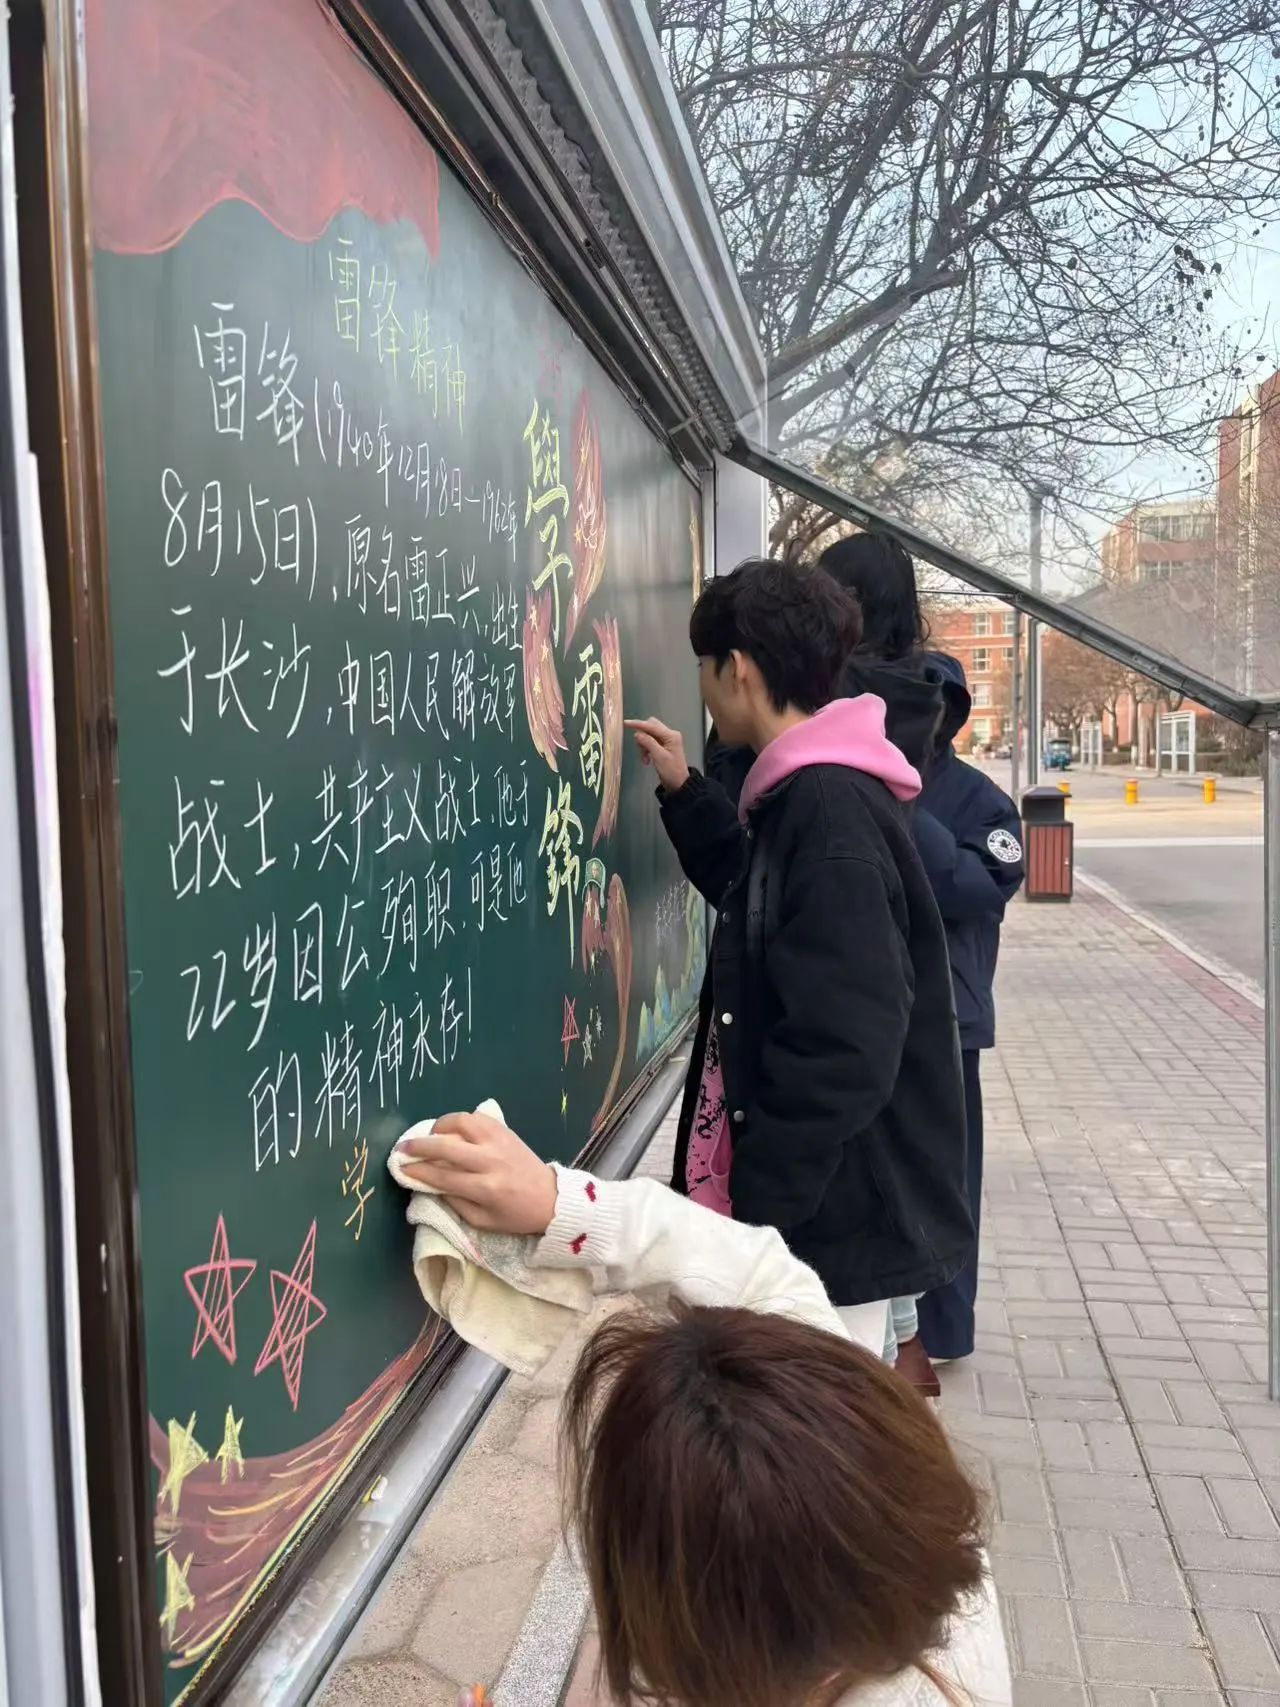 雷锋精神
雷锋(1940年12月18日—1962年
8月15日),原名雷正兴,出生
于长沙,中国人民解放军
战士,共产主义战士,他于
22岁因公殉职,可是他
的精神永存!
学
學
雷
鋒